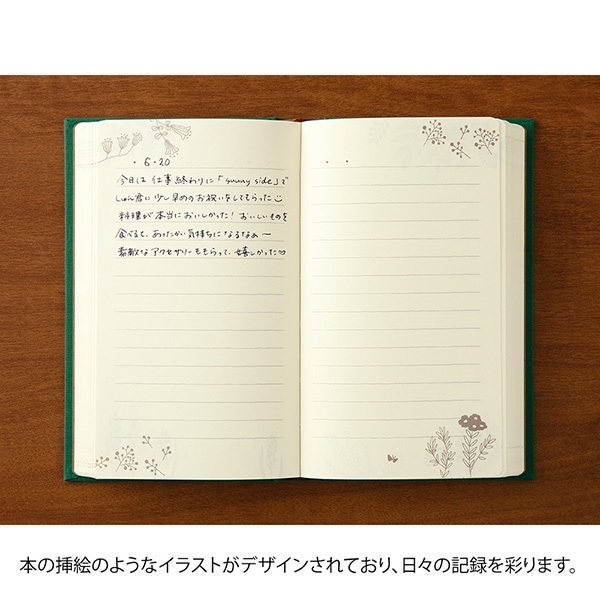 6・20
今日は仕事終わりに「sunny side」で
しゅん君に少し早めのお祝いをしてもらった
料理が本当においしかった!おいしいものを
食べると、あったかい気持ちになるなぁー
素敵なアクセサリーももらって、嬉しかった♡
本の挿絵のようなイラストがデザインされており、日々の記録を彩ります。